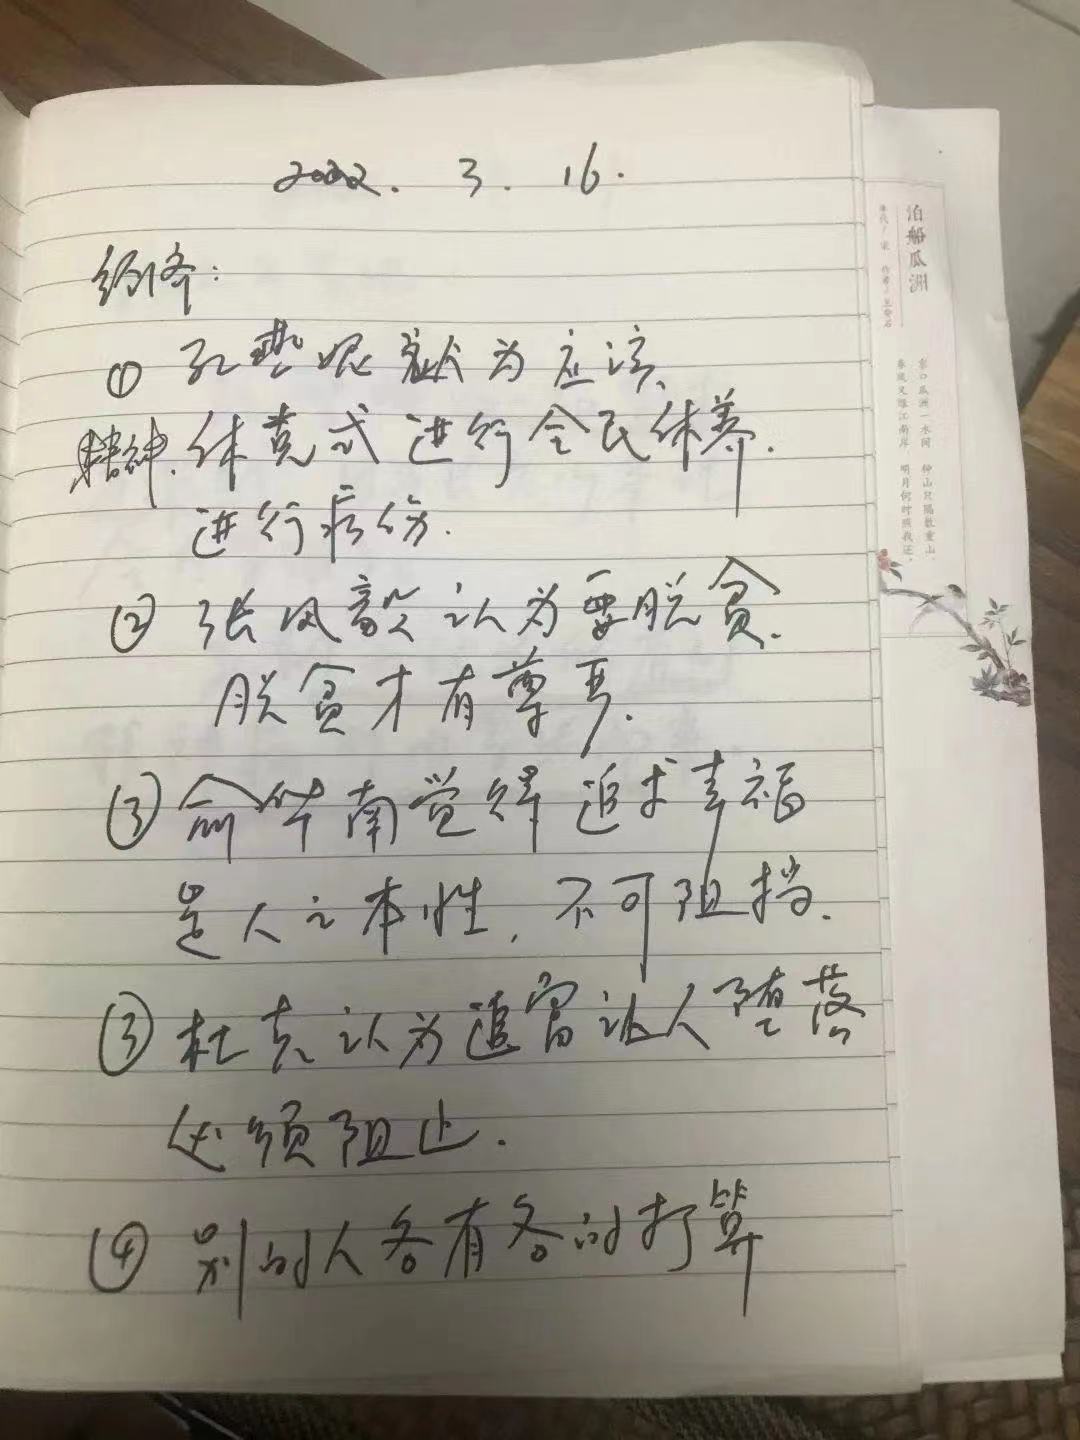 2022. 3. 16.
经济:
① 孔 默 为应该、
精神、休克式进行全民休养.
进行疗伤.
② 张风毅认为要脱贫.
脱贫才有尊严.
③ 俞华南觉得追求幸福
是人之本性, 不可阻挡.
③ 杜克认为追富让人堕落
必须阻止.
④ 别的人各有各的打算
泊船瓜洲
京口瓜洲一水间 钟山只隔数重山,
春风又绿江南岸 明月何时照我还。